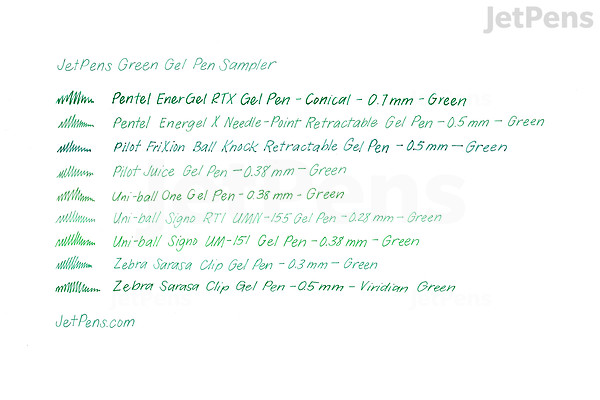 JetPens
JetPens Green Gel Pen Sampler
Pentel EnerGel RTX Gel Pen - Conical - 0.7 mm - Green
Pentel Energel X Needle-Point Retractable Gel Pen - 0.5 mm - Green
Pilot FriXion Ball Knock Retractable Gel Pen - 0.5 mm - Green
Pilot Juice Gel Pen - 0.38 mm - Green
Uni-ball One Gel Pen - 0.38 mm - Green
Uni-ball Signo RT1 UMN-155 Gel Pen - 0.28 mm - Green
Uni-ball Signo UM-151 Gel Pen - 0.38 mm - Green
Zebra Sarasa Clip Gel Pen - 0.3 mm - Green
Zebra Sarasa Clip Gel Pen - 0.5 mm - Viridian Green
JetPens.com